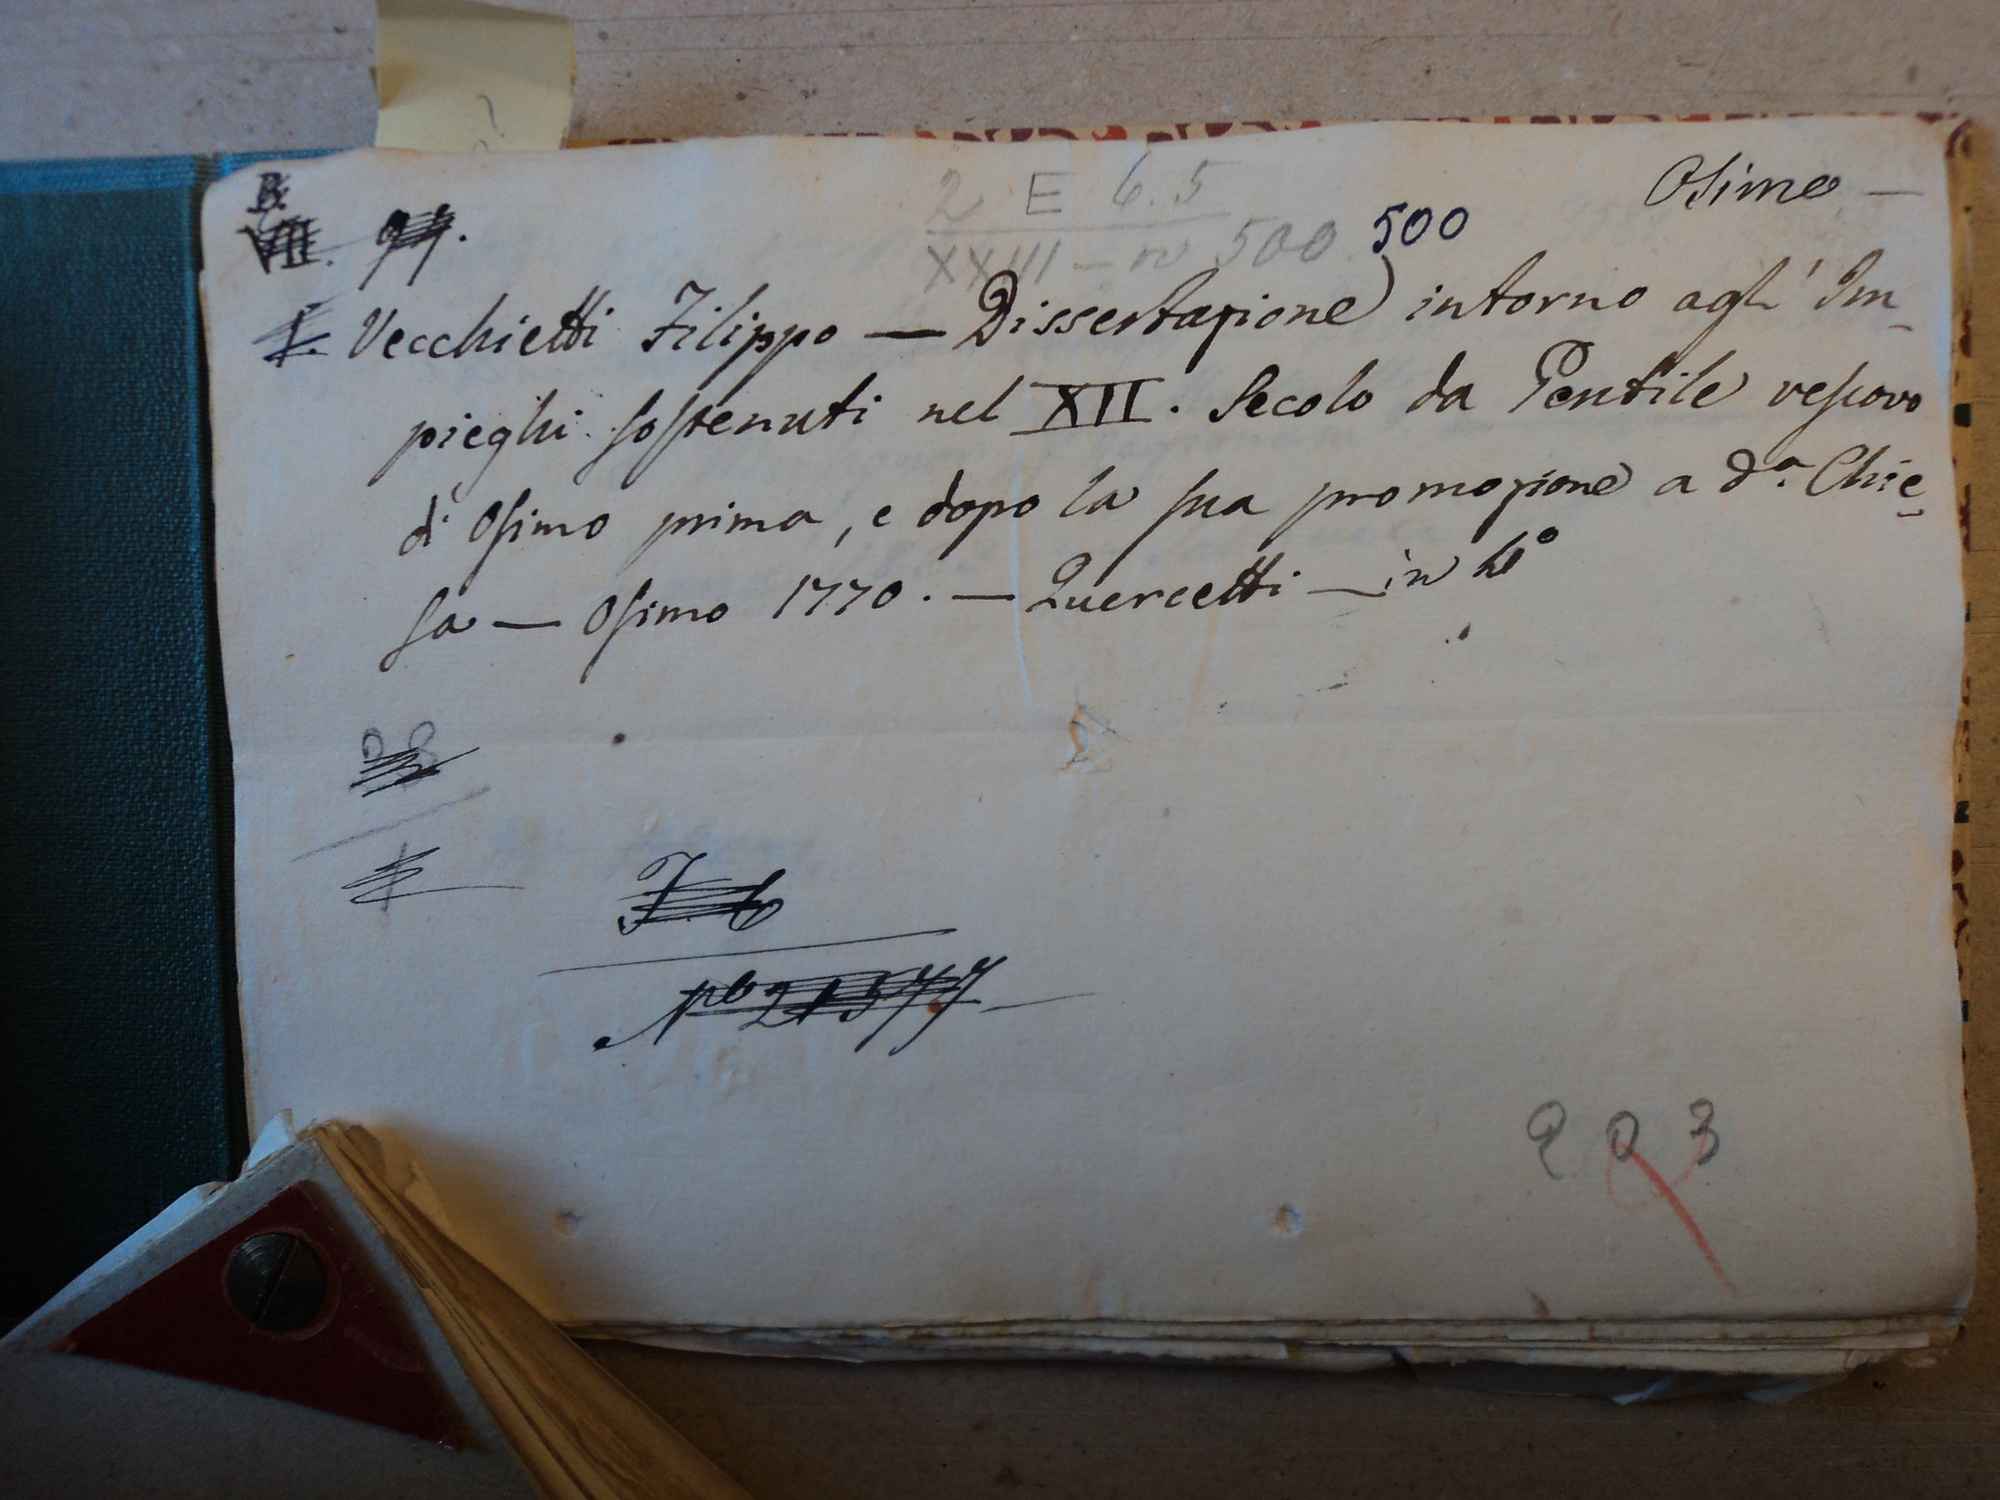 Osimo —
2 E 6.5
XXIII — n 500 500
B.
VII.
I. Vecchietti Filippo — Dissertazione intorno agl' Im-
pieghi sostenuti nel XII. Secolo da Gentile vescovo
di Osimo prima, e dopo la sua promozione a da. Chie-
sa — Osimo 1770. — Quercetti — in 4º
I 6
Nº 21577
2 0 3